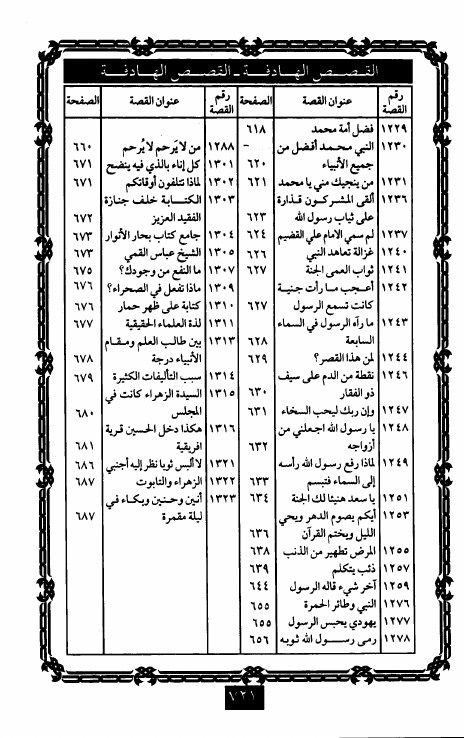 القصص الهادفة ـ القصص الهادفة
رقم القصة عنوان القصة الصفحة
١٢٢٩ فضل أمة محمد ٦١٨
١٢٣٠ النبي محمد أفضل من
جميع الأنبياء ٦٢٠
١٢٣١ من ينجيك مني يا محمد ٦٢١
١٢٣٦ ألقى المشركون قذارة
على ثياب رسول الله ٦٢٣
١٢٣٧ لم سمي الامام علي القضيم ٦٢٤
١٢٤٠ غزالة تعاهد النبي ٦٢٦
١٢٤١ ثواب العمى الجنة ٦٢٧
١٢٤٢ أعجب ما رأت جنية
كانت تسمع الرسول ٦٢٧
١٢٤٣ ما رآه الرسول في السماء
السابعة ٦٢٨
١٢٤٤ لمن هذا القصر؟ ٦٢٩
١٢٤٦ نقطة من الدم على سيف
ذو الفقار ٦٣٠
١٢٤٧ وإن ربك ليحب السخاء ٦٣١
١٢٤٨ يا رسول الله اجعلني من
أزواجه ٦٣٢
١٢٤٩ لماذا رفع رسول الله رأسه
إلى السماء فتبسم ٦٣٣
١٢٥١ يا سعد هنيئا لك الجنة ٦٣٤
١٢٥٣ أيكم يصوم الدهر ويحي
الليل ويختم القرآن ٦٣٦
١٢٥٥ المرض تطهير من الذنب ٦٣٨
١٢٥٧ ذئب يتكلم ٦٣٩
١٢٥٩ آخر شيء قاله الرسول ٦٤٤
١٢٧٦ النبي وطائر الحمرة ٦٥٥
١٢٧٧ يهودي يحبس الرسول ٦٥٥
١٢٧٨ رمى رسول الله ثوبه ٦٥٦
رقم القصة عنوان القصة الصفحة
١٢٨٨ من لا يَرحم لا يُرحم ٦٦٠
١٣٠١ كل إناء بالذي فيه ينضح ٦٧١
١٣٠٢ لماذا تتلفون أوقاتكم ٦٧١
١٣٠٣ الكتابة خلف جنازة
الفقيد العزيز ٦٧٢
١٣٠٤ جامع كتاب بحار الأنوار ٦٧٣
١٣٠٥ الشيخ عباس القمي ٦٧٣
١٣٠٧ ما النفع من وجودك؟ ٦٧٥
١٣٠٩ ماذا تفعل في الصحراء؟ ٦٧٦
١٣١٠ كتابة على ظهر حمار ٦٧٦
١٣١١ لذة العلماء الحقيقية ٦٧٧
١٣١٣ بين طالب العلم ومقام
الأنبياء درجة ٦٧٨
١٣١٤ سبب التأليفات الكثيرة ٦٧٩
١٣١٥ السيدة الزهراء كانت في
المجلس ٦٨٠
١٣١٦ هكذا دخل الحسين قرية
افريقية ٦٨١
١٣٢١ لا ألبس ثوبا نظر إليه أجنبي ٦٨٦
١٣٢٢ الزهراء والتابوت ٦٨٧
١٣٢٣ أنين وحنين وبكاء في
ليلة مقمرة ٦٨٧
٧٢١